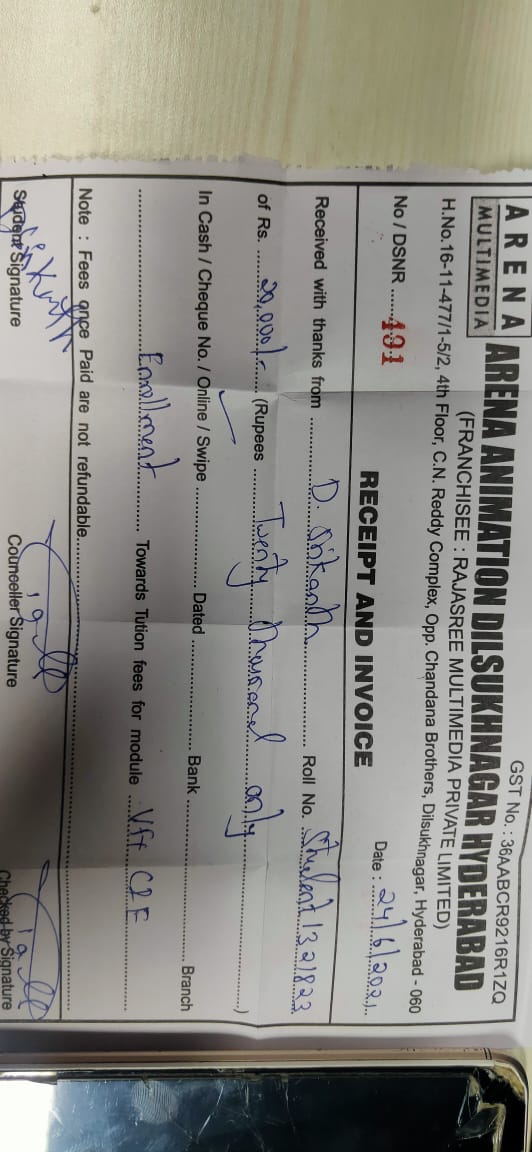 GST No. : 36AABCR9216R1ZQ
ARENA
MULTIMEDIA
ARENA ANIMATION DILSUKHNAGAR HYDERABAD
(FRANCHISEE : RAJASREE MULTIMEDIA PRIVATE LIMITED)
H.No.16-11-477/1-5/2, 4th Floor, C.N. Reddy Complex, Opp. Chandana Brothers, Dilsukhnagar, Hyderabad - 060
No / DSNR ......491
RECEIPT AND INVOICE
Date : 24/6/2021
Received with thanks from D. Srikanth Roll No. Student1321823
of Rs. 20,000/- (Rupees Twenty thousand only )
In Cash / Cheque No. / Online / Swipe ............ Dated ............ Bank ............ Branch
Enrollment Towards Tution fees for module Vfx CPF
Note : Fees once Paid are not refundable
Student Signature
Counceller Signature
Checked by Signature